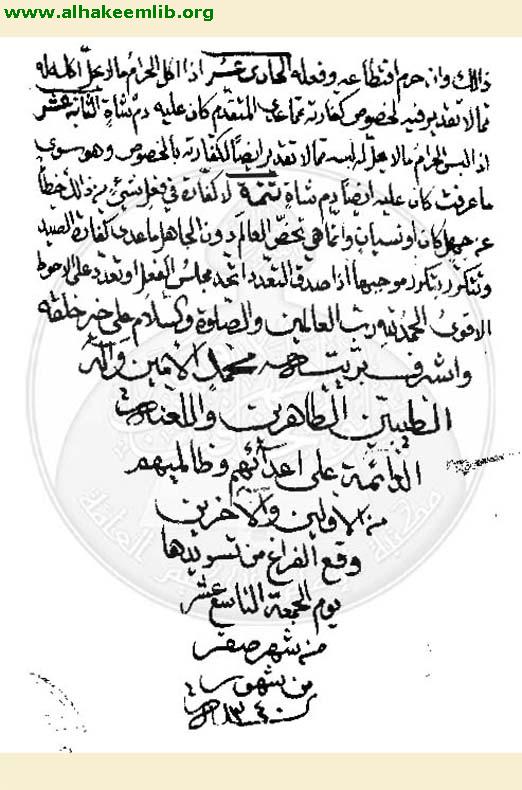 www.alhakeemlib.org
ذالك وان حرم اقتطاعه وفعله الحادى عشر اذا اكل المحرام مالا يحل اكله له
مما لا تقدير فيه لخصوص كفارته مما عدى المتقدم كان عليه دم شاة الثانية عشر
اذا لبس المحرام مالا يحل له لبسه مما لا تقدير ايضاً لكفارته بالخصوص وهو سوى
ما عرفت كان عليه ايضاً دم شاة تتمة لا كفارة فى فعل شىء من ذالك خطأ
عن جهل كان او نسيان وانما هى تخص العالم دون الجاهل ما عدى كفارة الصيد
وتتكرر بتكرر موجبها اذا صدق التعدد اتحد مجلس الفعل او تعدد على الاحوط
الاقوى الحمد لله رب العالمين والصلوة والسلام على خير خلقه
واشرف بريته محمد الامين وآله
الطيبين الطاهرين واللعنة
الدائمة على اعدائهم وظالميهم
من الاولين والآخرين
وقع الفراغ من تسويدها
يوم الجمعة التاسع عشر
من شهر صفر
من شهور
سنة ١٣٤٠